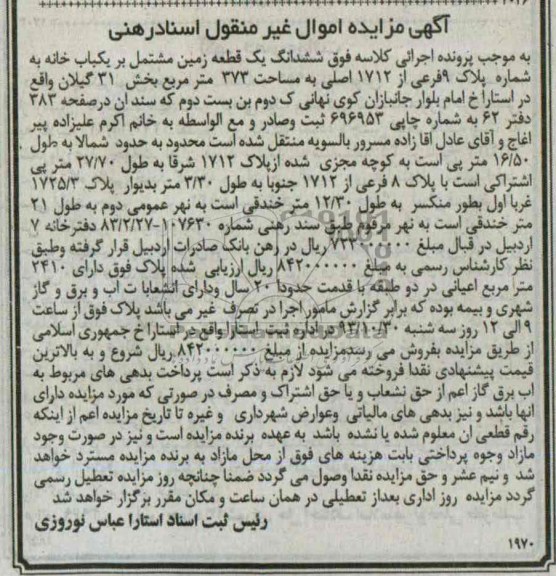 آگهی مزایده اموال غیر منقول اسنادرهنی
به موجب پرونده اجرائی کلاسه فوق ششدانگ یک قطعه زمین مشتمل بر یکباب خانه به
شماره پلاک ۹فرعی از ۱۷۱۲ اصلی به مساحت ۳۷۳ متر مربع بخش ۳۱ گیلان واقع
در استارا خ امام بلوار جانبازان کوی نهانی ک دوم بن بست دوم که سند ان درصفحه ۳۸۳
دفتر ۶۲ به شماره چاپی ۶۹۶۹۵۳ ثبت وصادر و مع الواسطه به خانم اکرم علیزاده پیر
اغاج و آقای عادل آقا زاده مسرور بالسویه منتقل شده است محدود به حدود شمالا به طول
۱۶/۵۰ متر پی است به کوچه مجزی شده ازپلاک ۱۷۱۲ شرقا به طول ۲۷/۷۰ متر پی
اشتراکی است با پلاک ۸ فرعی از ۱۷۱۲ جنوبا به طول ۳/۳۰ متر بدیوار پلاک ۱۷۲۵/۳
غربا اول بطور منکسر به طول ۱۲/۳۰ متر خندقی است به نهر عمومی دوم به طول ۲۱
متر خندقی است به نهر مرقوم طبق سند رهنی شماره ۱۰۷۶۳۰-۸۳/۲/۲۷ دفترخانه ۷
اردبیل در قبال مبلغ ریال در رهن بانک صادرات اردبیل قرار گرفته وطبق
نظر کارشناس رسمی به مبلغ ۸۴۲۰۰۰۰۰۰۰ ریال ارزیابی شده پلاک فوق دارای ۲۴۱۰
متر مربع اعیانی در دو طبقه با قدمت حدودا ۲۰ سال ودارای انشعابا ت اب و برق و گاز
شهری و بیمه بوده که برابر گزارش مامور اجرا در تصرف غیر می باشد پلاک فوق از ساعت
۹ الی ۱۲ روز سه شنبه ۹۳/۱۰/۳۰ در اداره ثبت استارا واقع در استارا خ جمهوری اسلامی
از طریق مزایده بفروش می رسدمزایده از مبلغ ۸۴۲۰۰۰۰۰۰۰ ریال شروع و به بالاترین
قیمت پیشنهادی نقدا فروخته می شود لازم به ذکر است پرداخت بدهی های مربوط به
اب برق گاز اعم از حق نشعاب و یا حق اشتراک و مصرف در صورتی که مورد مزایده دارای
انها باشد و نیز بدهی های مالیاتی وعوارض شهرداری و غیره تا تاریخ مزایده اعم از اینکه
رقم قطعی ان معلوم شده یا نشده باشد به عهده برنده مزایده است و نیز در صورت وجود
مازاد وجوه پرداختی بابت هزینه های فوق از محل مازاد به برنده مزایده مسترد خواهد
شد و نیم عشر و حق مزایده نقدا وصول می گردد ضمنا چنانچه روز مزایده تعطیل رسمی
گردد مزایده روز اداری بعداز تعطیلی در همان ساعت و مکان مقرر برگزار خواهد شد
رئیس ثبت اسناد استارا عباس نوروزی
۱۹۷۰